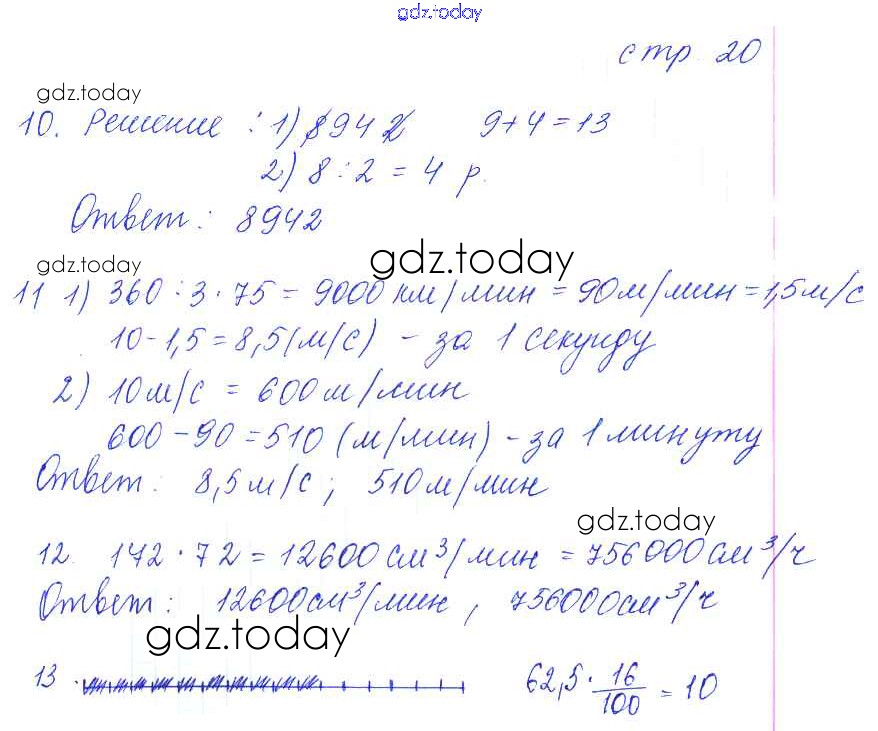 gdz.today
стр. 20
gdz.today
10. Решение : 1) 8942 9+4=13
2) 8 : 2 = 4 р.
Ответ: 8942
gdz.today
gdz.today
11 1) 360 : 3 · 75 = 9000 км/мин = 90м/мин = 1,5м/с
10-1,5 = 8,5(м/с) - за 1 секунду
2) 10м/с = 600м/мин
600-90=510 (м/мин) - за 1 минуту
Ответ: 8,5м/с; 510м/мин
gdz.today
12. 172 · 72 = 12600см³/мин = 756000см³/ч
Ответ: 12600см³/мин, 756000см³/ч
gdz.today
13 62,5 · 16/100 = 10